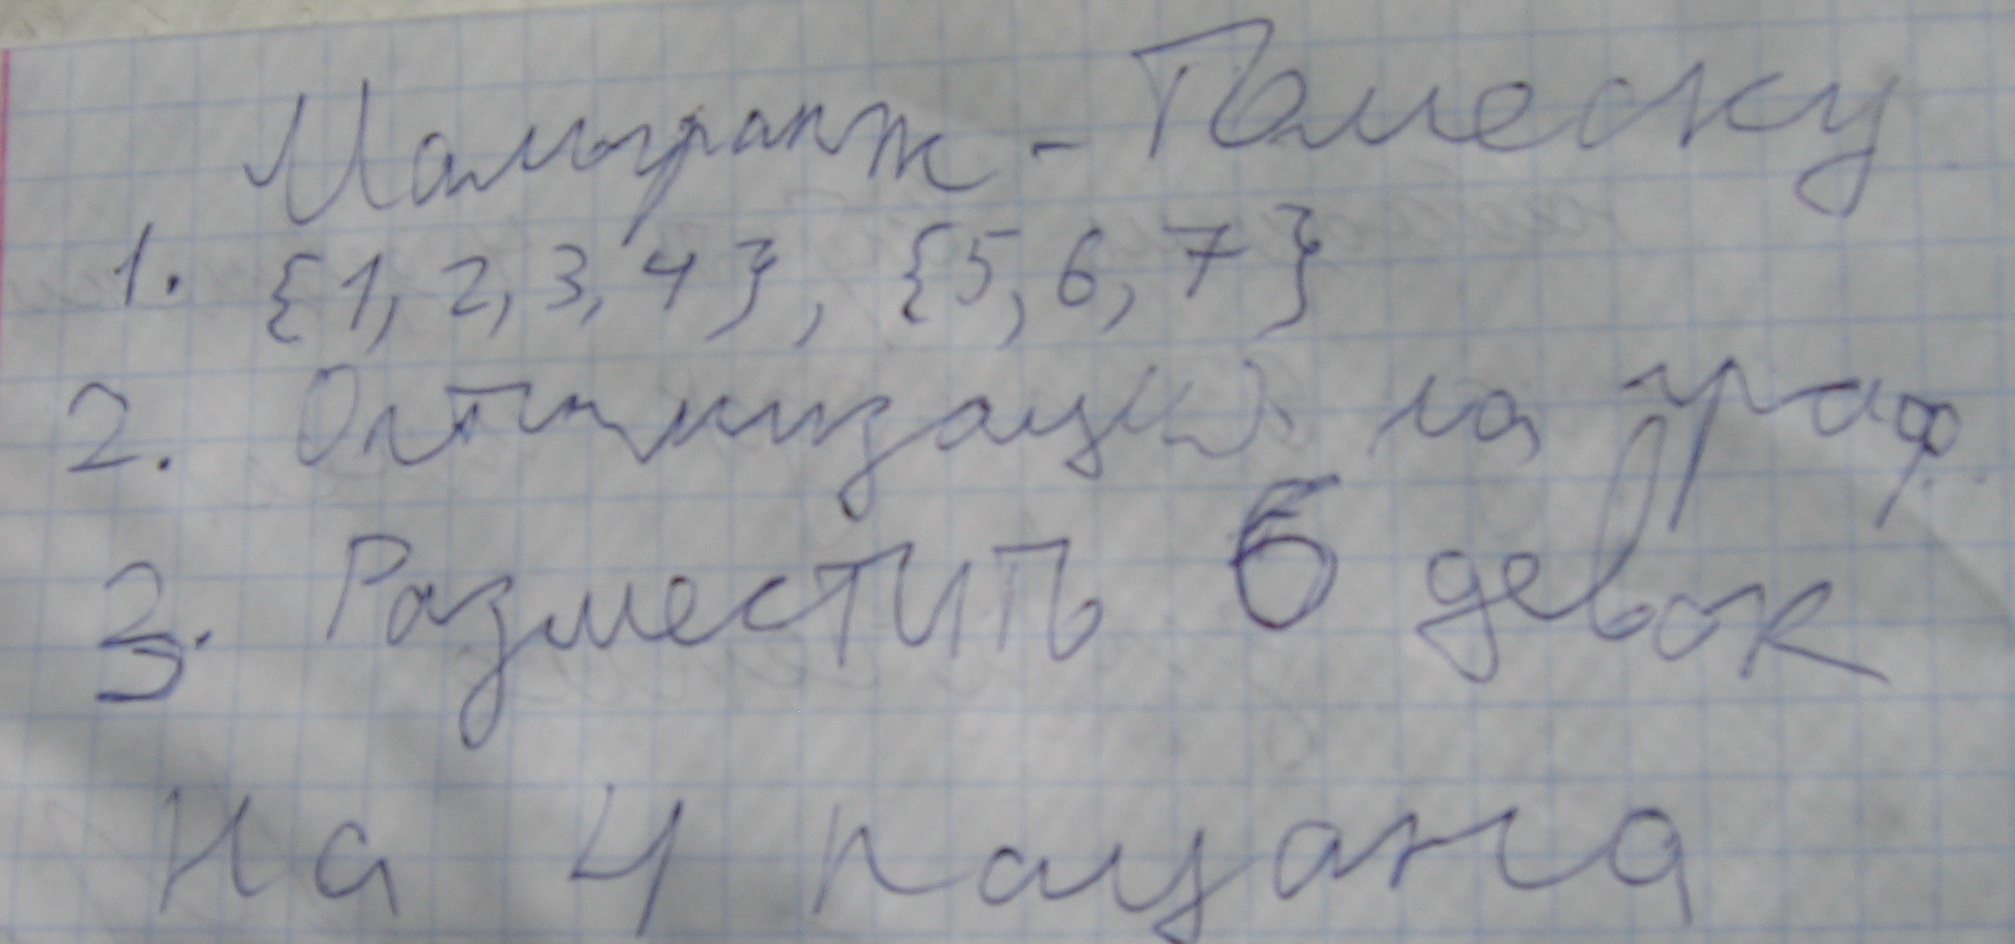 Малгранж - Томеску
1. {1, 2, 3, 4}, {5, 6, 7}
2. Оптимизация на граф.
3. Разместить 6 девок
на 4 пацана